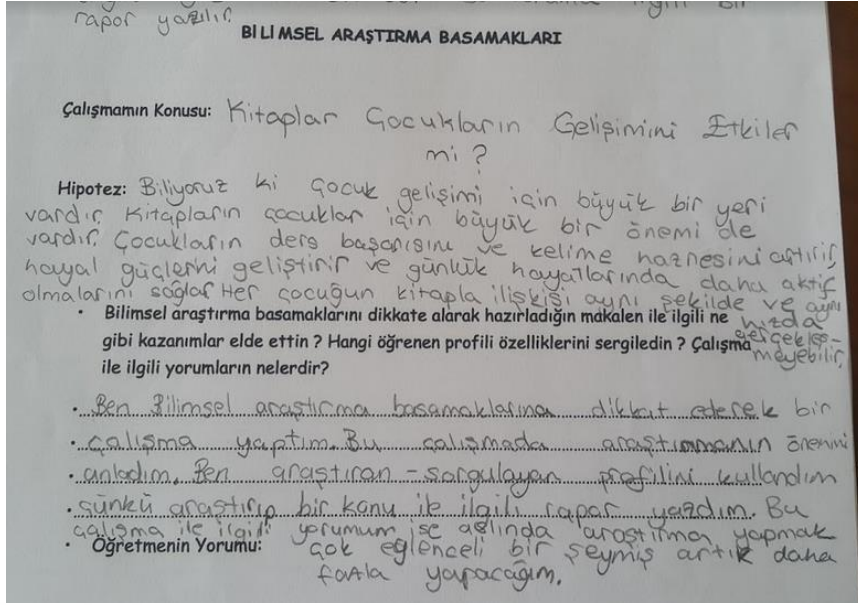 rapor yazılır.
BİLİMSEL ARAŞTIRMA BASAMAKLARI
Çalışmamın Konusu: Kitaplar Çocukların Gelişimini Etkiler
mi ?
Hipotez: Biliyoruz ki çocuk gelişimi için büyük bir yeri
vardır. Kitapların çocuklar için büyük bir önemi de
vardır. Çocukların ders başarısını ve kelime haznesini artırır,
hayal güçlerini geliştirir ve günlük hayatlarında daha aktif
olmalarını sağlar Her çocuğun kitapla ilişkisi aynı şekilde ve aynı
hızda
gerçekleş-
meyebilir.
• Bilimsel araştırma basamaklarını dikkate alarak hazırladığın makalen ile ilgili ne
gibi kazanımlar elde ettin ? Hangi öğrenen profili özelliklerini sergiledin ? Çalışma
ile ilgili yorumların nelerdir?
• Ben Bilimsel araştırma basamaklarına dikkat ederek bir
• çalışma yaptım. Bu çalışmada araştırmanın önenini
• anladım. Ben araştıran - sorgulayan profilini kullandım
• çünkü araştırıp bir konu ile ilgili rapor yazdım. Bu
çalışma ile ilgili yorumum ise aslında araştırma yapmak
• Öğretmenin Yorumu: çok eğlenceli bir şeymiş artık daha
fazla yapacağım.